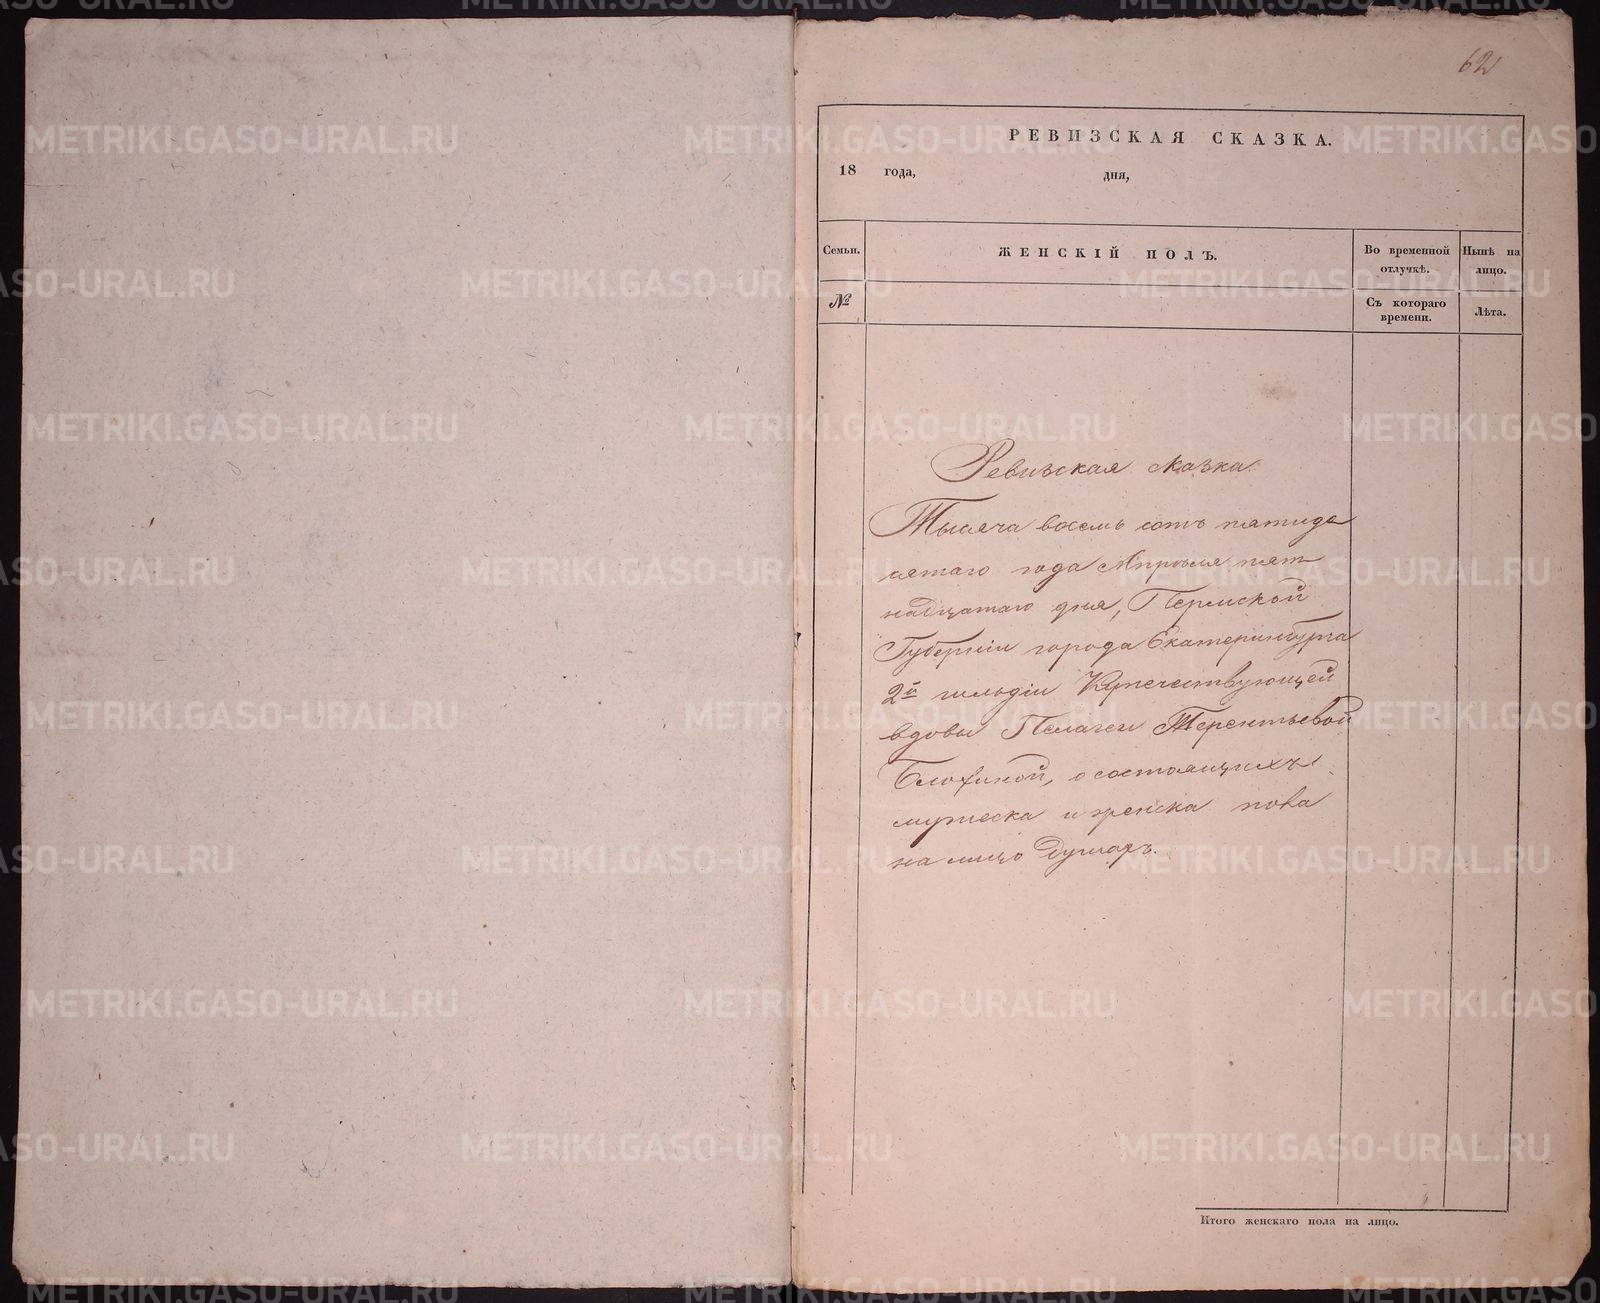 62
РЕВИЗСКАЯ СКАЗКА.
18 года, дня,
Семьи. ЖЕНСКІЙ ПОЛЪ. Во временной отлучкѣ. Нынѣ на лицо.
№ Съ котораго времени. Лѣта.
Ревизская сказка
Тысяча восемь сотъ пятиде
сятаго года Апрѣля пят
надцатаго дня, Пермской
Губерніи города Екатеринбурга
2й гильдіи Купечествующей
вдовы Пелагеи Терентьевой
Блохиной, о состоящихъ
мужеска и женска пола
на лицо душахъ.
Итого женскаго пола на лицо.
METRIKI.GASO-URAL.RU